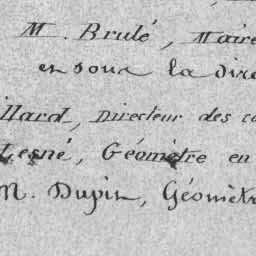 M. Brulé, Maire
en sous la dire
illard, Directeur des co
Lesné, Géomètre en
M. Dupin, Géomètr